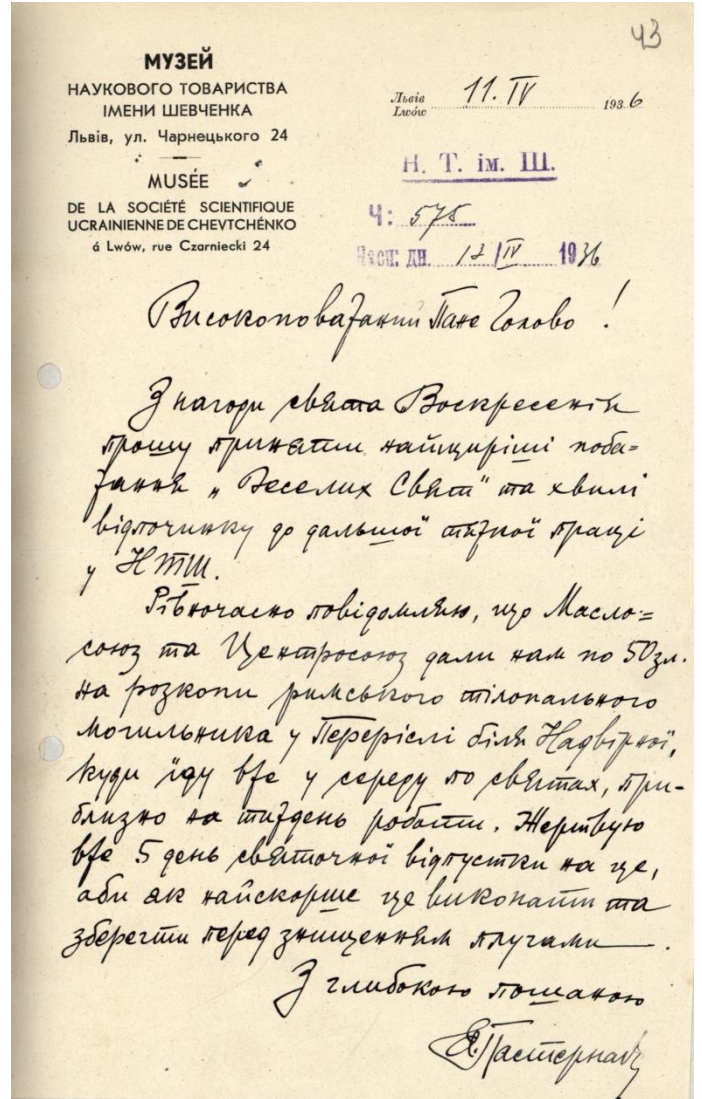 43
МУЗЕЙ
НАУКОВОГО ТОВАРИСТВА
ІМЕНИ ШЕВЧЕНКА
Львів, ул. Чарнецького 24
MUSÉE
DE LA SOCIÉTÉ SCIENTIFIQUE
UCRAINIENNE DE CHEVTCHÉNKO
á Lwów, rue Czarniecki 24
Львів
Lwów
11. IV 1936
Н. Т. ім. Ш.
Ч: 575
дн. 13/IV 1936
Високоповажаний Пане Голово!
З нагоди свята Воскресенія
прошу приняти найщиріші поба=
жання „Веселих Свят" та хвилі
відпочинку до дальшої тяжкої праці
у НТШ.
Рівночасно повідомляю, що Масло=
союз та Центросоюз дали нам по 50 зл.
на розкопи римського тілопального
могильника у Перерісли біля Надвірної,
куди їду вже у середу по святах, при-
близно на тиждень роботи. Жертвую
вже 5 день святочної відпустки на це,
аби як найскорше це виконати та
зберегти перед знищенням плугами.
З глибокою пошаною
Я. Пастернак